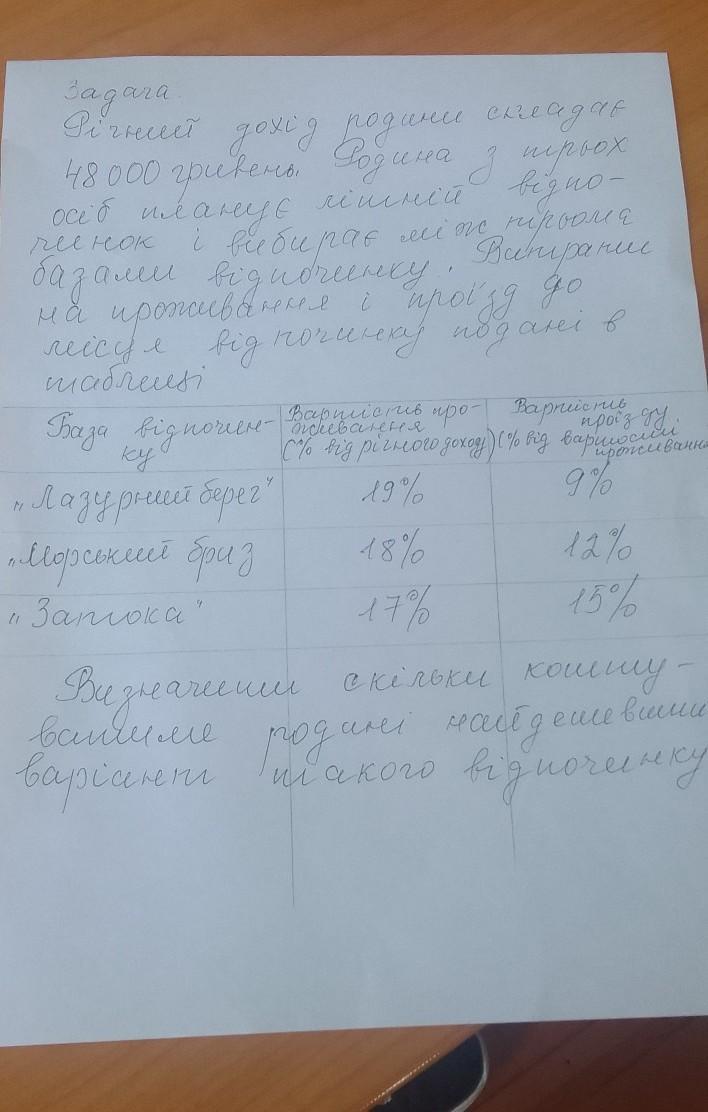 Задача.
Річний дохід родини складає
48000 гривень. Родина з трьох
осіб планує літній відпо-
чинок і вибирає між трьома
базами відпочинку. Витрати
на проживання і проїзд до
місця відпочинку подані в
таблиці
База відпочин-
ку
Вартість про-
живання
(% від річного доходу)
Вартість
проїзду
(% від вартості
проживання
„Лазурний берег" 19% 9%
„Морський бриз 18% 12%
„Затока" 17% 15%
Визначити скільки кошту-
ватиме родині найдешевший
варіант такого відпочинку